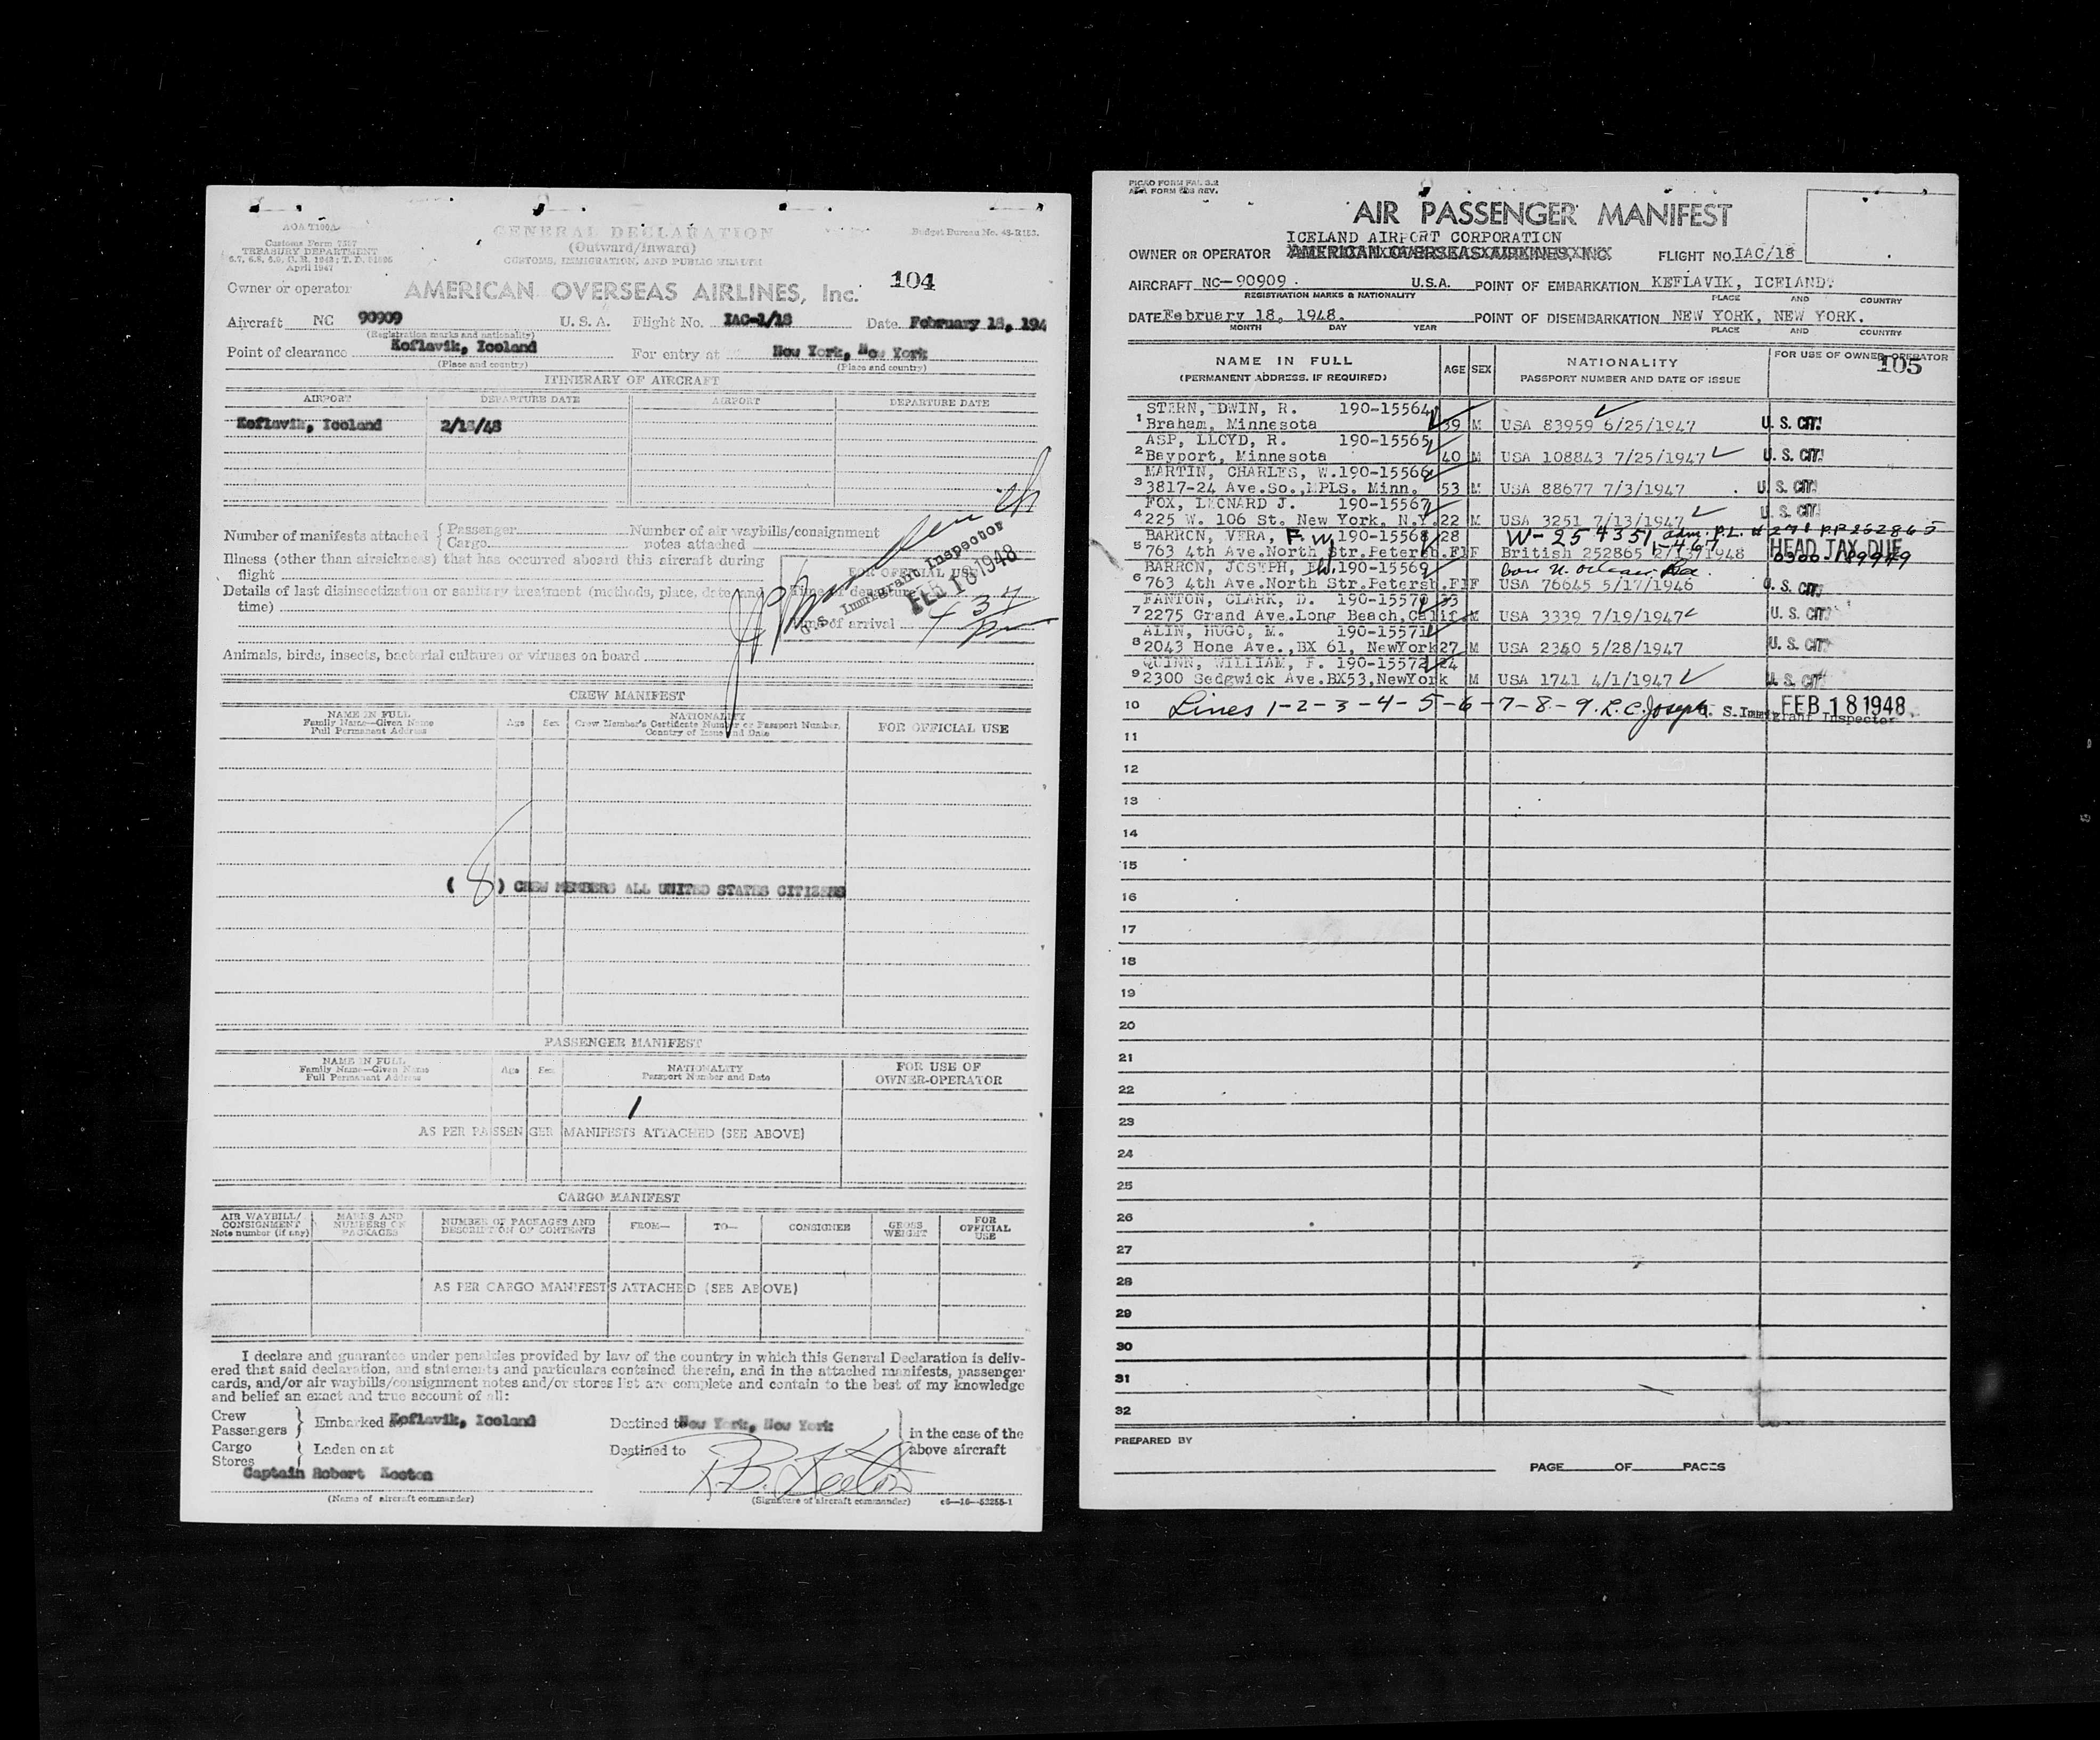 AOA T100A
Customs Form 7507
TREASURY DEPARTMENT
April 1947
GENERAL DECLARATION
(Outward/Inward)
CUSTOMS, IMMIGRATION, AND PUBLIC HEALTH
Budget Bureau No. 48-R153.
104
Owner or operator AMERICAN OVERSEAS AIRLINES, Inc.
Aircraft NC 90909 U. S. A. Flight No. IAC-1/18 Date February 18, 194
(Registration marks and nationality)
Point of clearance Keflavik, Iceland For entry at New York, New York
(Place and country) (Place and country)
ITINERARY OF AIRCRAFT
AIRPORT DEPARTURE DATE AIRPORT DEPARTURE DATE
Keflavik, Iceland 2/18/48
Number of manifests attached { Passenger Number of air waybills/consignment
Cargo notes attached
Illness (other than airsickness) that has occurred aboard this aircraft during
flight
FOR OFFICIAL USE
Details of last disinsectization or sanitary treatment (methods, place, date, and
time)
Time of departure
Time of arrival 4 37 pm
U.S. Immigrant Inspector
FEB 18 1948
Animals, birds, insects, bacterial cultures or viruses on board
CREW MANIFEST
NAME IN FULL
Family Name—Given Name
Full Permanent Address
Age Sex
NATIONALITY
Crew Member's Certificate Number or Passport Number,
Country of Issue and Date
FOR OFFICIAL USE
( 8 ) CREW MEMBERS ALL UNITED STATES CITIZENS
PASSENGER MANIFEST
NAME IN FULL
Family Name—Given Name
Full Permanent Address
Age Sex
NATIONALITY
Passport Number and Date
FOR USE OF
OWNER-OPERATOR
1
AS PER PASSENGER MANIFESTS ATTACHED (SEE ABOVE)
CARGO MANIFEST
AIR WAYBILL/
CONSIGNMENT
Note number (if any)
MARKS AND
NUMBERS ON
PACKAGES
NUMBER OF PACKAGES AND
DESCRIPTION OF CONTENTS
FROM— TO— CONSIGNEE
GROSS
WEIGHT
FOR
OFFICIAL
USE
AS PER CARGO MANIFESTS ATTACHED (SEE ABOVE)
I declare and guarantee under penalties provided by law of the country in which this General Declaration is deliv-
ered that said declaration, and statements and particulars contained therein, and in the attached manifests, passenger
cards, and/or air waybills/consignment notes and/or stores list are complete and contain to the best of my knowledge
and belief an exact and true account of all:
Crew
Passengers } Embarked at Keflavik, Iceland Destined to New York, New York
in the case of the
above aircraft
Cargo
Stores } Laden on at Destined to
Captain Robert Keeton
R.B. Keeton
(Name of aircraft commander) (Signature of aircraft commander) c6—16—53255-1
PICAO FORM FAL 3.2
ATA FORM REV.
AIR PASSENGER MANIFEST
ICELAND AIRPORT CORPORATION
OWNER OR OPERATOR AMERICAN OVERSEAS AIRLINES, INC. FLIGHT NO. IAC/18
AIRCRAFT NC-90909 . U.S.A. POINT OF EMBARKATION KEFLAVIK, ICELAND.
REGISTRATION MARKS & NATIONALITY PLACE AND COUNTRY
DATE February 18, 1948. POINT OF DISEMBARKATION NEW YORK, NEW YORK.
MONTH DAY YEAR PLACE AND COUNTRY
NAME IN FULL
(PERMANENT ADDRESS, IF REQUIRED)
AGE SEX
NATIONALITY
PASSPORT NUMBER AND DATE OF ISSUE
FOR USE OF OWNER-OPERATOR
105
STERN, DWIN, R. 190-15564
1 Braham, Minnesota 39 M USA 83959 6/25/1947 U. S. CIT.
ASP, LLOYD, R. 190-15565
2 Bayport, Minnesota 40 M USA 108843 7/25/1947 U. S. CIT.
MARTIN, CHARLES, W. 190-15566
3 3817-24 Ave.So.,MPLS. Minn. 53 M USA 88677 7/3/1947 U. S. CIT.
FOX, LEONARD J. 190-15567
4 225 W. 106 St. New York, N.Y. 22 M USA 3251 7/13/1947 U. S. CIT.
BARRON, VERA, F. W. 190-15568 28 W-254351 adm. P.L. # 271 P.P. 252865
5 763 4th Ave.North Str.Petersb.Fl F British 252865 1948 HEAD TAX DUE
0300-189949
BARRON, JOSEPH, W. 190-15569 born N. Orleans La.
6 763 4th Ave.North Str.Petersb.Fl F USA 76645 5/17/1946 U. S. CIT.
FANTON, CLARK, D. 190-15570 33
7 2275 Grand Ave.Long Beach,Calif. M USA 3339 7/19/1947 U. S. CIT.
ALIN, HUGO, M. 190-15571
8 2043 Hone Ave.,BX 61, NewYork 27 M USA 2340 5/28/1947 U. S. CIT.
QUINN, WILLIAM, F. 190-15572 24
9 2300 Sedgwick Ave.BX53,NewYork M USA 1741 4/1/1947 U. S. CIT.
10 Lines 1-2-3-4-5-6-7-8-9. L.C. Joseph U. S. Immigrant Inspector FEB 18 1948
11
12
13
14
15
16
17
18
19
20
21
22
23
24
25
26
27
28
29
30
31
32
PREPARED BY
PAGE OF PAGES